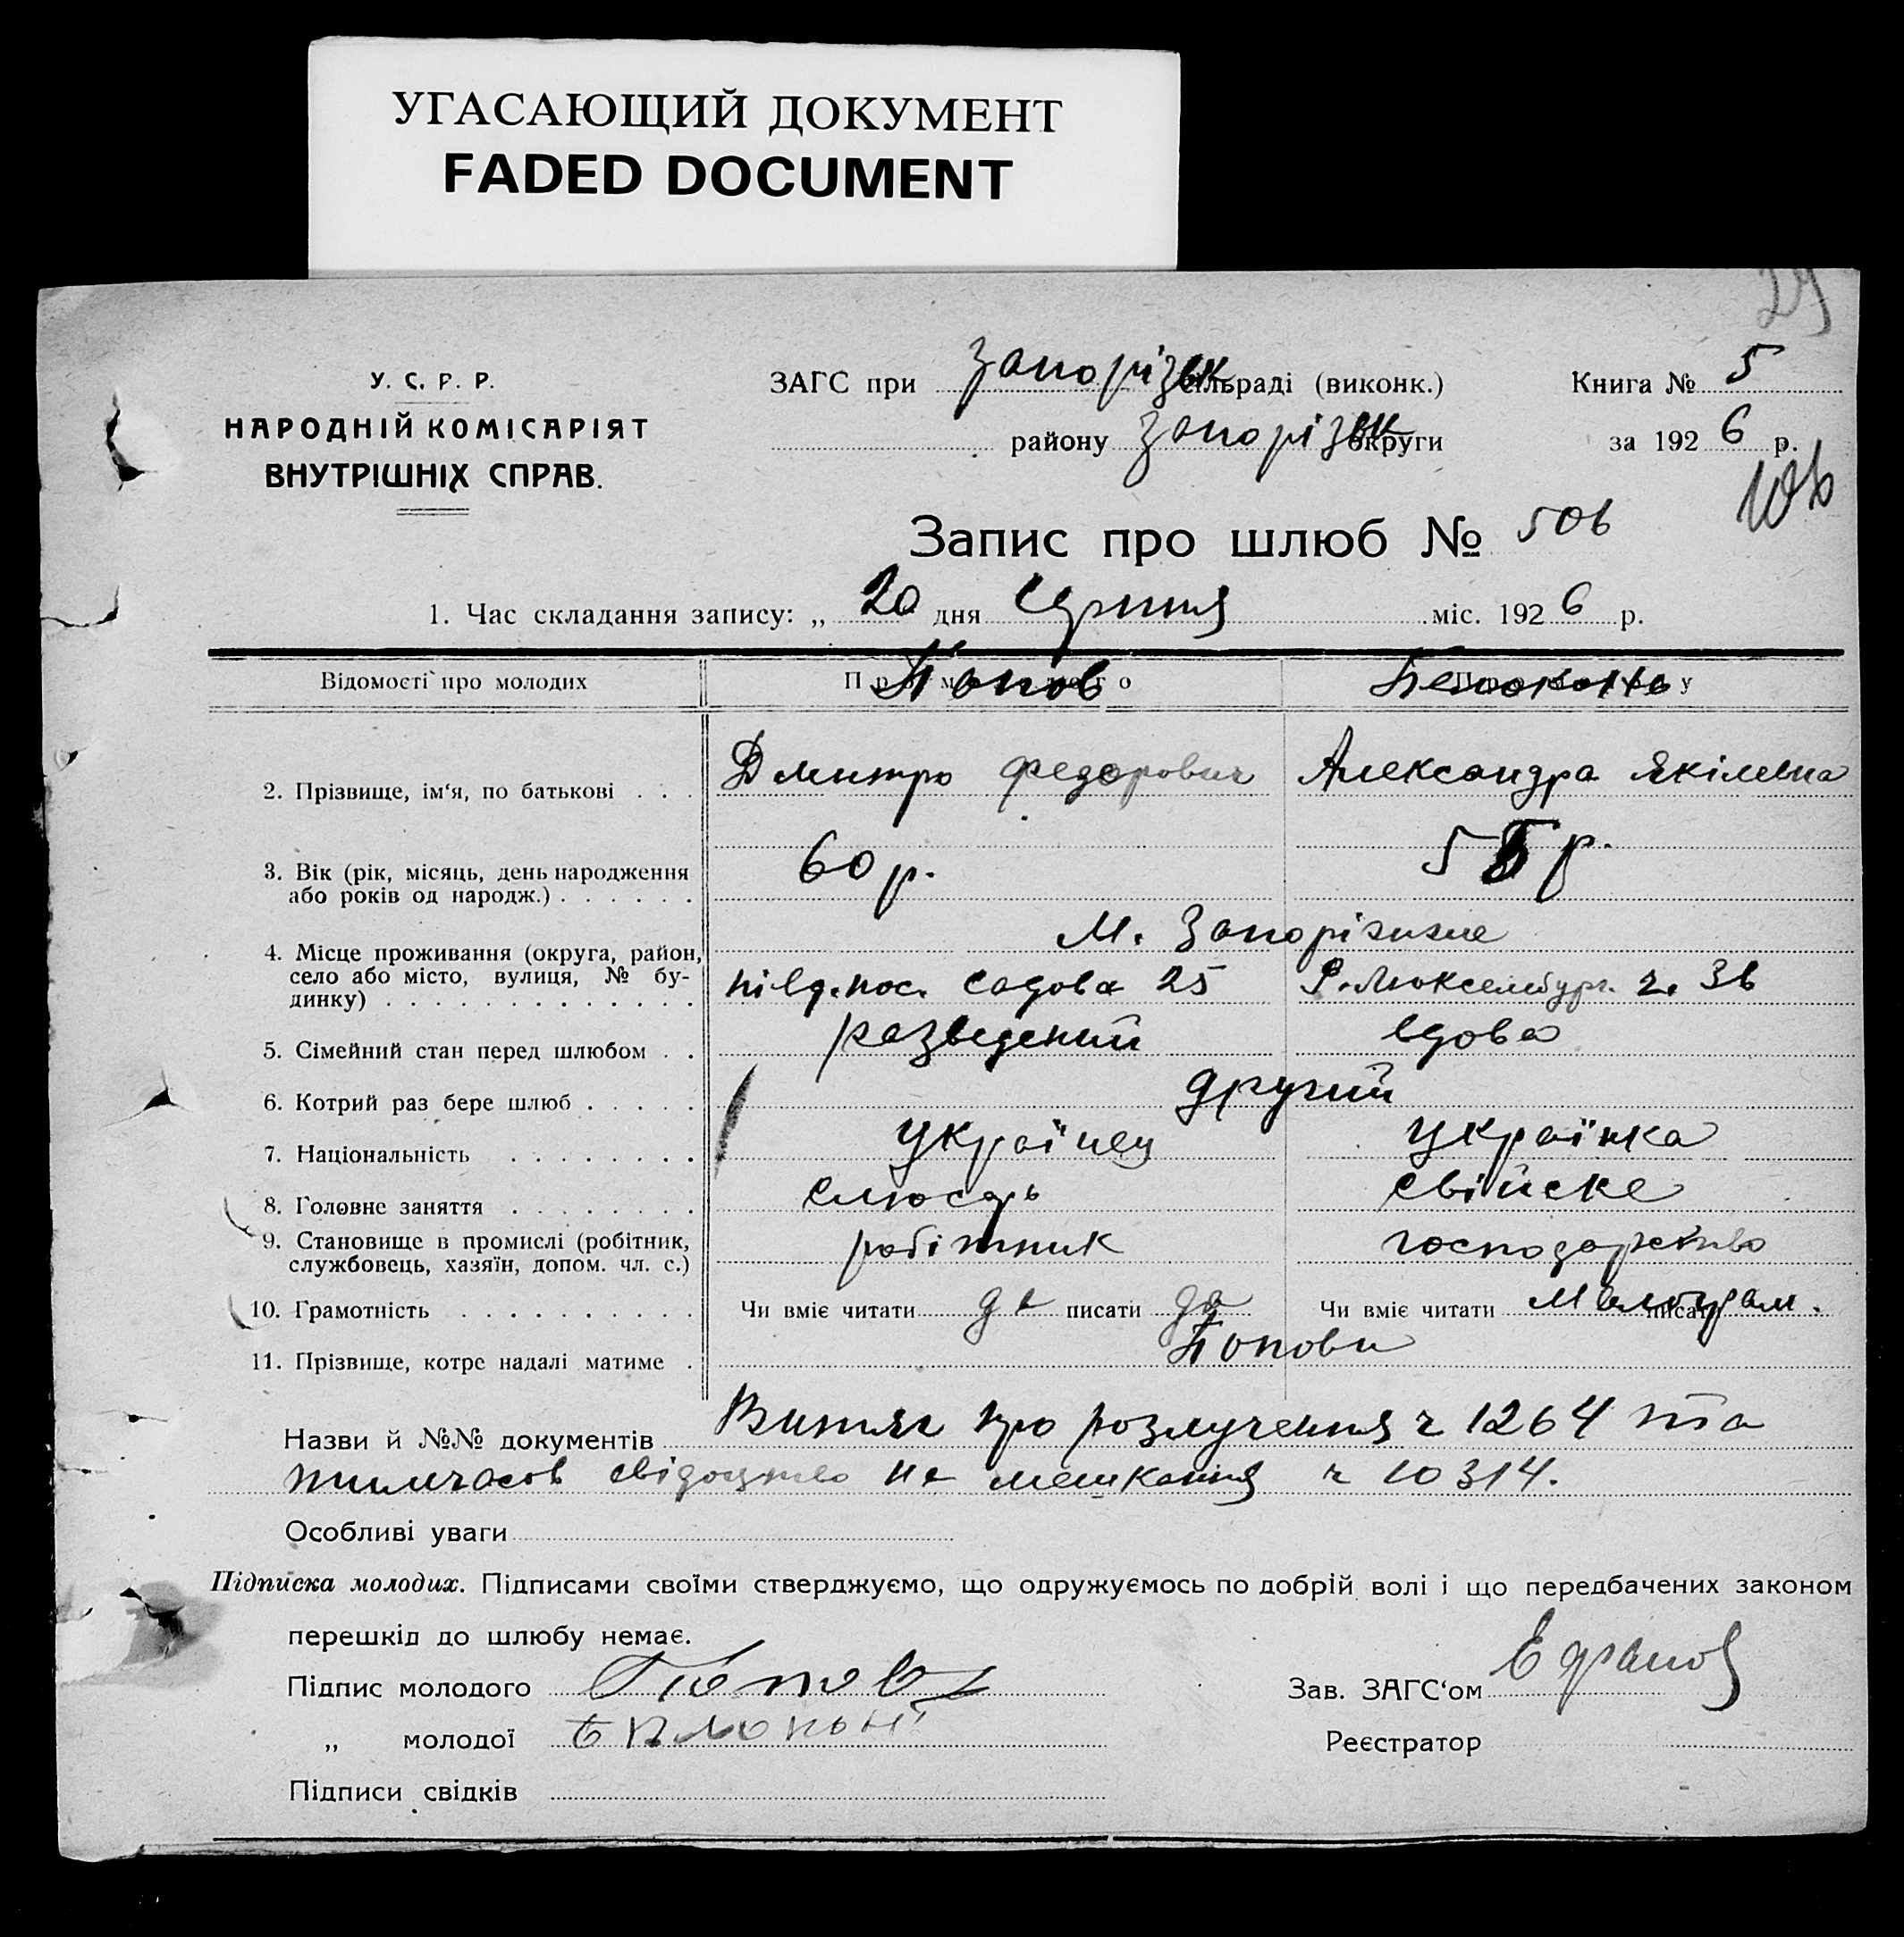 УГАСАЮЩИЙ ДОКУМЕНТ
FADED DOCUMENT
29
У. С. Р. Р.
НАРОДНІЙ КОМІСАРІЯТ
ВНУТРІШНІХ СПРАВ.
ЗАГС при Запорізьк сільраді (виконк.) Книга № 5
району Запорізьк округи за 1926 р.
Запис про шлюб № 506
1. Час складання запису: „ 20 дня Серпня міс. 1926 р.
Відомості про молодих Попов Белоконь
2. Прізвище, ім'я, по батькові . . . Дмитро Федорович Александра Якілевна
3. Вік (рік, місяць, день народження 60 р. 55 р.
або років од народж.) . . . . . .
4. Місце проживання (округа, район, М. Запоріжже
село або місто, вулиця, № бу- півд. пос. Садова 25 Р. Люксембург. ч. 36
динку) . . . . . . . . . . . . .
5. Сімейний стан перед шлюбом . . разведений вдова
6. Котрий раз бере шлюб . . . . . другий
7. Національність . . . . . . . . Українец Українка
8. Головне заняття . . . . . . . . слюсарь свійске
9. Становище в промислі (робітник, робітник господарство
службовець, хазяїн, допом. чл. с.)
10. Грамотність . . . . . . . . . . Чи вміє читати да писати да Чи вміє читати Малограм. писати
11. Прізвище, котре надалі матиме . Попови
Назви й №№ документів Витяг про розлучення ч 1264 та
тимчасов свідоцтво на мешкання ч 10314.
Особливі уваги
Підписка молодих. Підписами своїми стверджуємо, що одружуємось по добрій волі і що передбачених законом
перешкід до шлюбу немає.
Підпис молодого Попов Зав. ЗАГС'ом
„ молодої Реєстратор
Підписи свідків